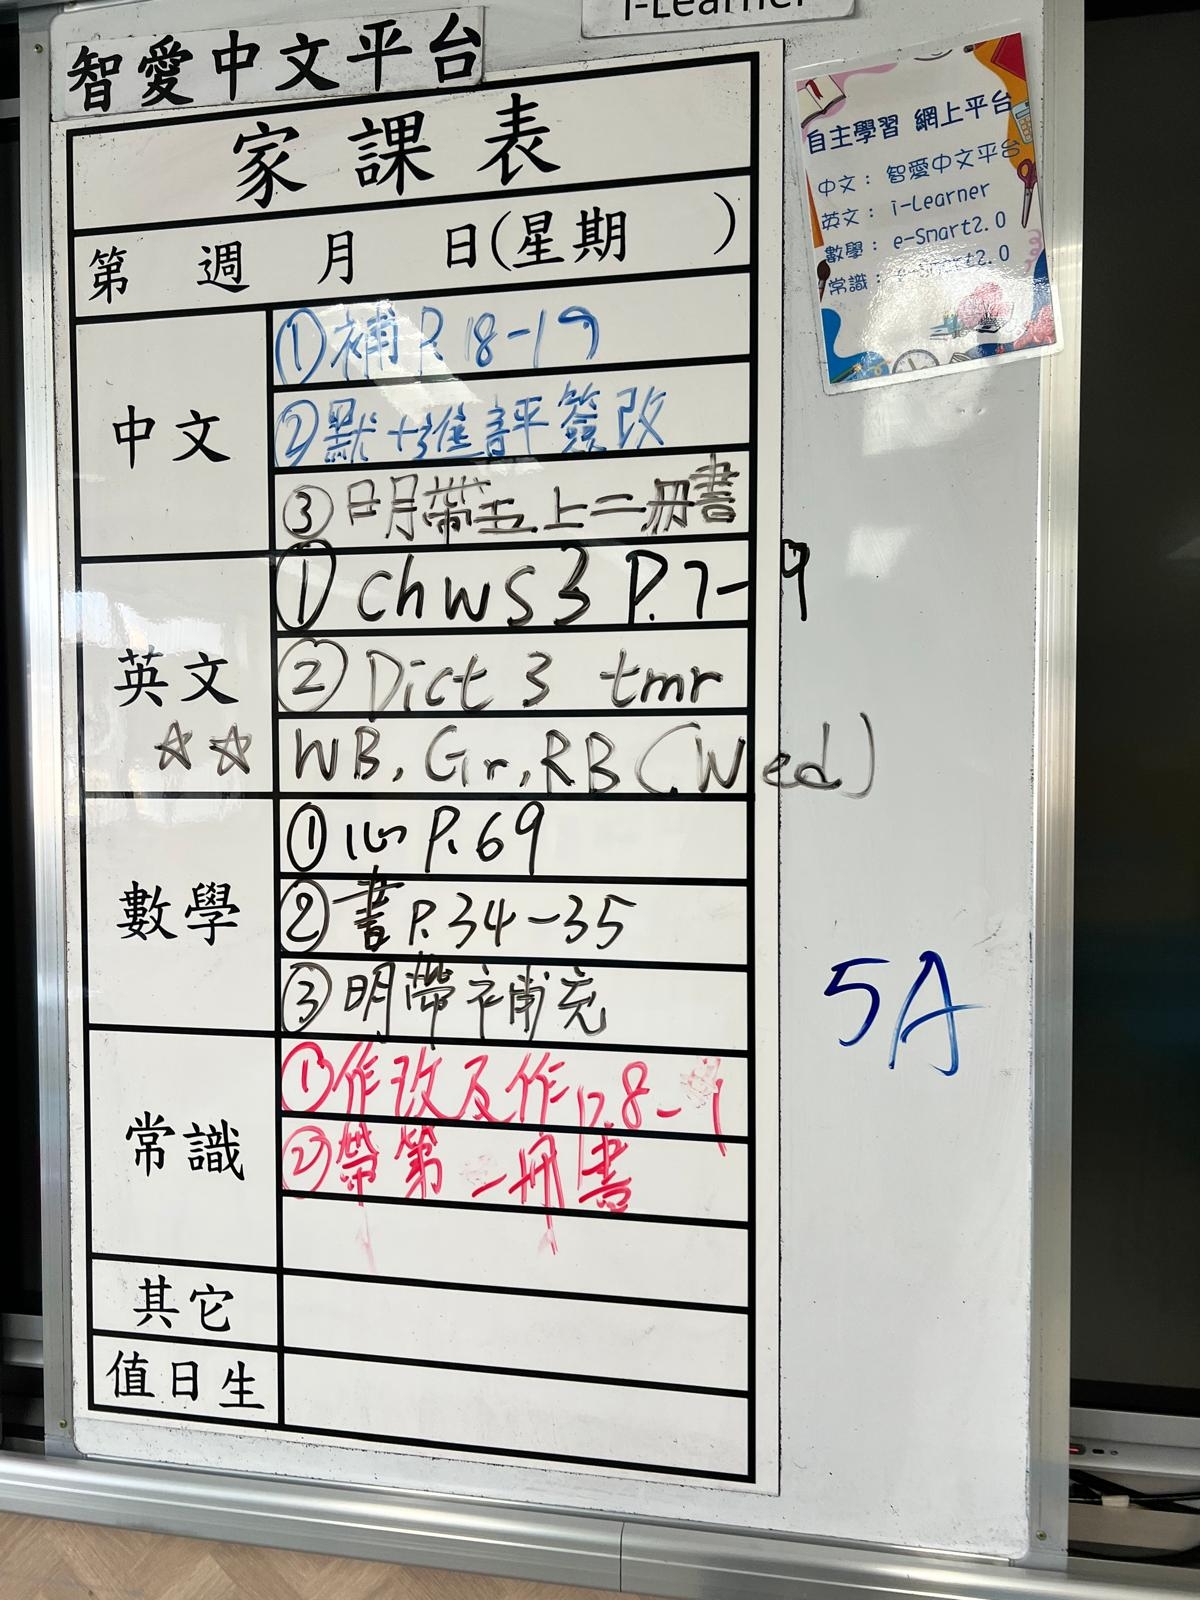 i-Learner
智愛中文平台
家課表
第 週 月 日(星期 )
中文
①補P.18-19
②默+進評簽改
③明帶五上二冊書
英文
☆☆
① chWS3 P.7-9
② Dict 3 tmr
WB, Gr, RB (Wed)
數學
①心P.69
②書P.34-35
③明帶補充
常識
①作改及作p.8-9
②帶第一冊書
其它
值日生
自主學習 網上平台
中文： 智愛中文平台
英文： i-Learner
數學： e-Smart2.0
常識： e-Smart2.0
5A